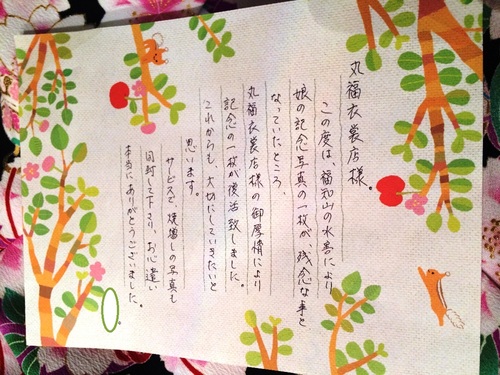 丸福衣裳店様。
この度は、福知山の水害により
娘の記念写真の一枚が、残念な事と
なっていたところ、
丸福衣裳店様の御厚情により
記念の一枚が復活致しました。
これからも、大切にしていきたいと
思います。
サービスで、焼増しの写真も
同封して下さり、お心遣い
本当にありがとうございました。